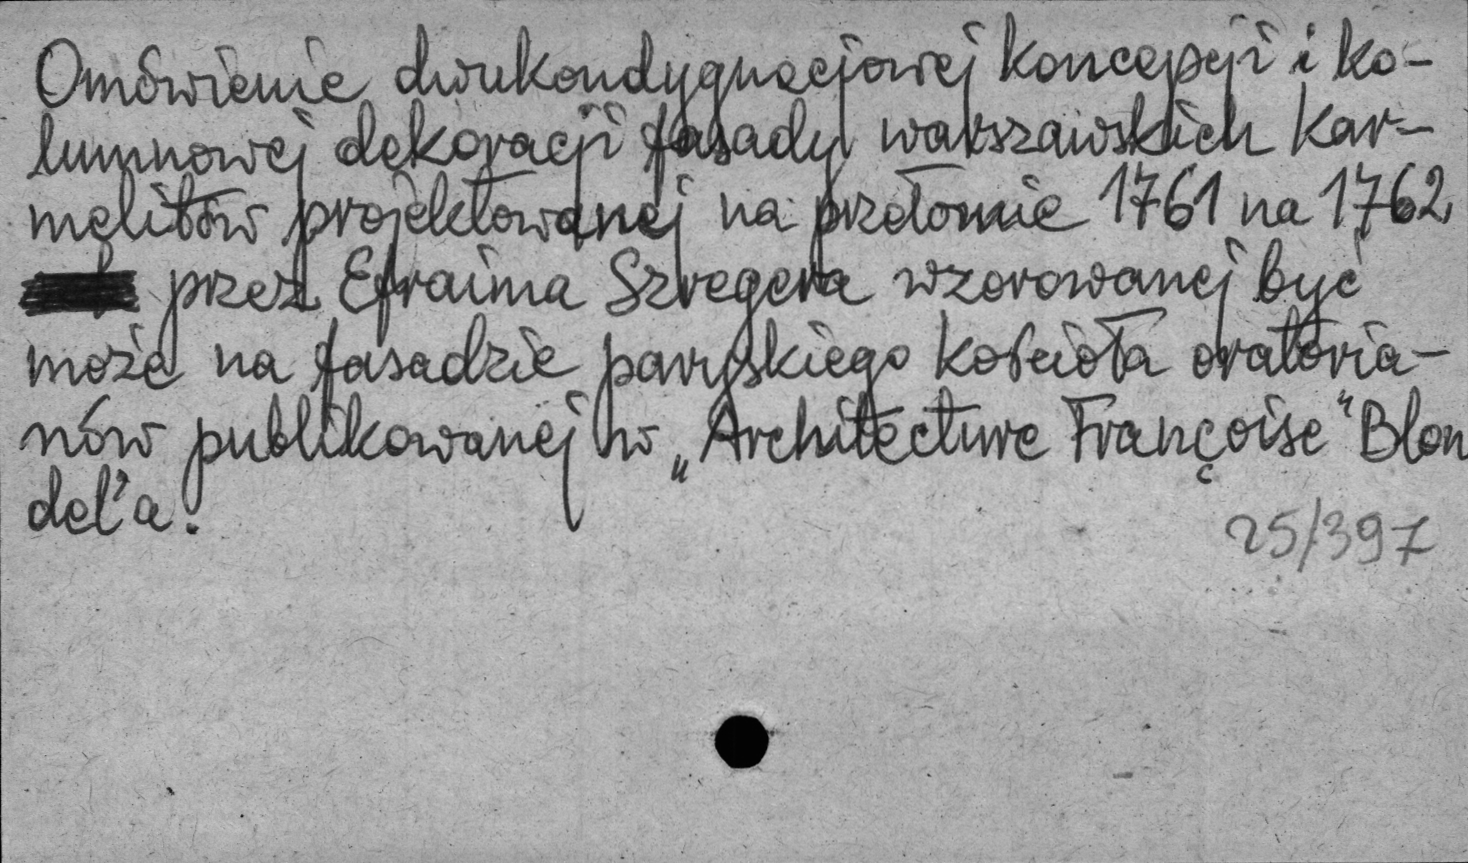 Omówienie dwukondygnacjowej koncepcji i ko-
lumnowej dekoracji fasady warszawskich Kar-
melitów projektowanej na przełomie 1761 na 1762
przez Efraima Szregera wzorowanej być
może na fasadzie paryskiego kościoła oratoria-
nów publikowanej w „Architecture Françoise" Blon
del'a.
25/397